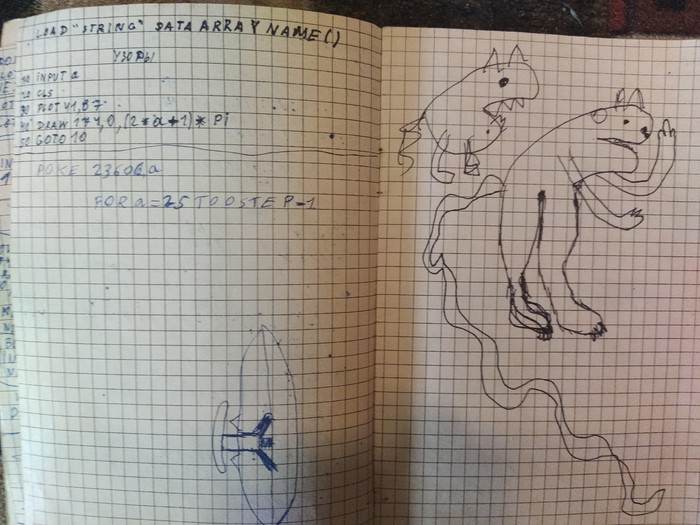 LOAD "STRING" DATA ARRAY NAME()
УЗОРЫ
10 INPUT a
20 CLS
30 PLOT 41,87
40 DRAW 174,0,(2*a+1)*PI
50 GOTO 10
POKE 23606,a
FOR a=25 TO 0 STEP-1